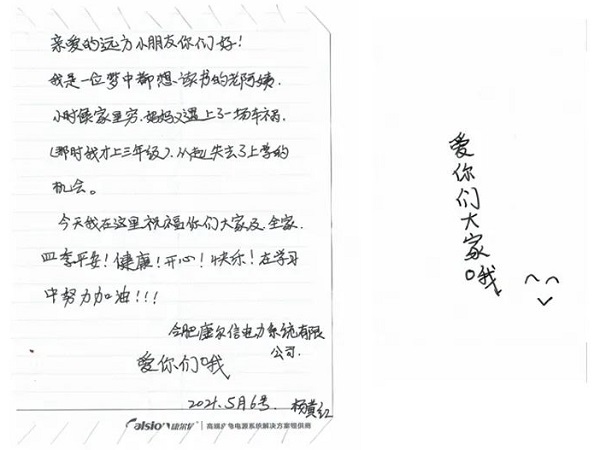 亲爱的远方小朋友你们好！
我是一位梦中都想读书的老阿姨，
小时候家里穷，妈妈又遇上了一场车祸，
（那时我才上三年级），从此失去了上学的
机会。
今天我在这里祝福你们大家及全家
四季平安！健康！开心！快乐！在学习
中努力加油！！！
合肥康尔信电力系统有限
公司.
爱你们哦
2021.5月6号. 杨黄红
alsion 康尔信 高端矿电电源系统解决方案提供商
爱你们大家哦